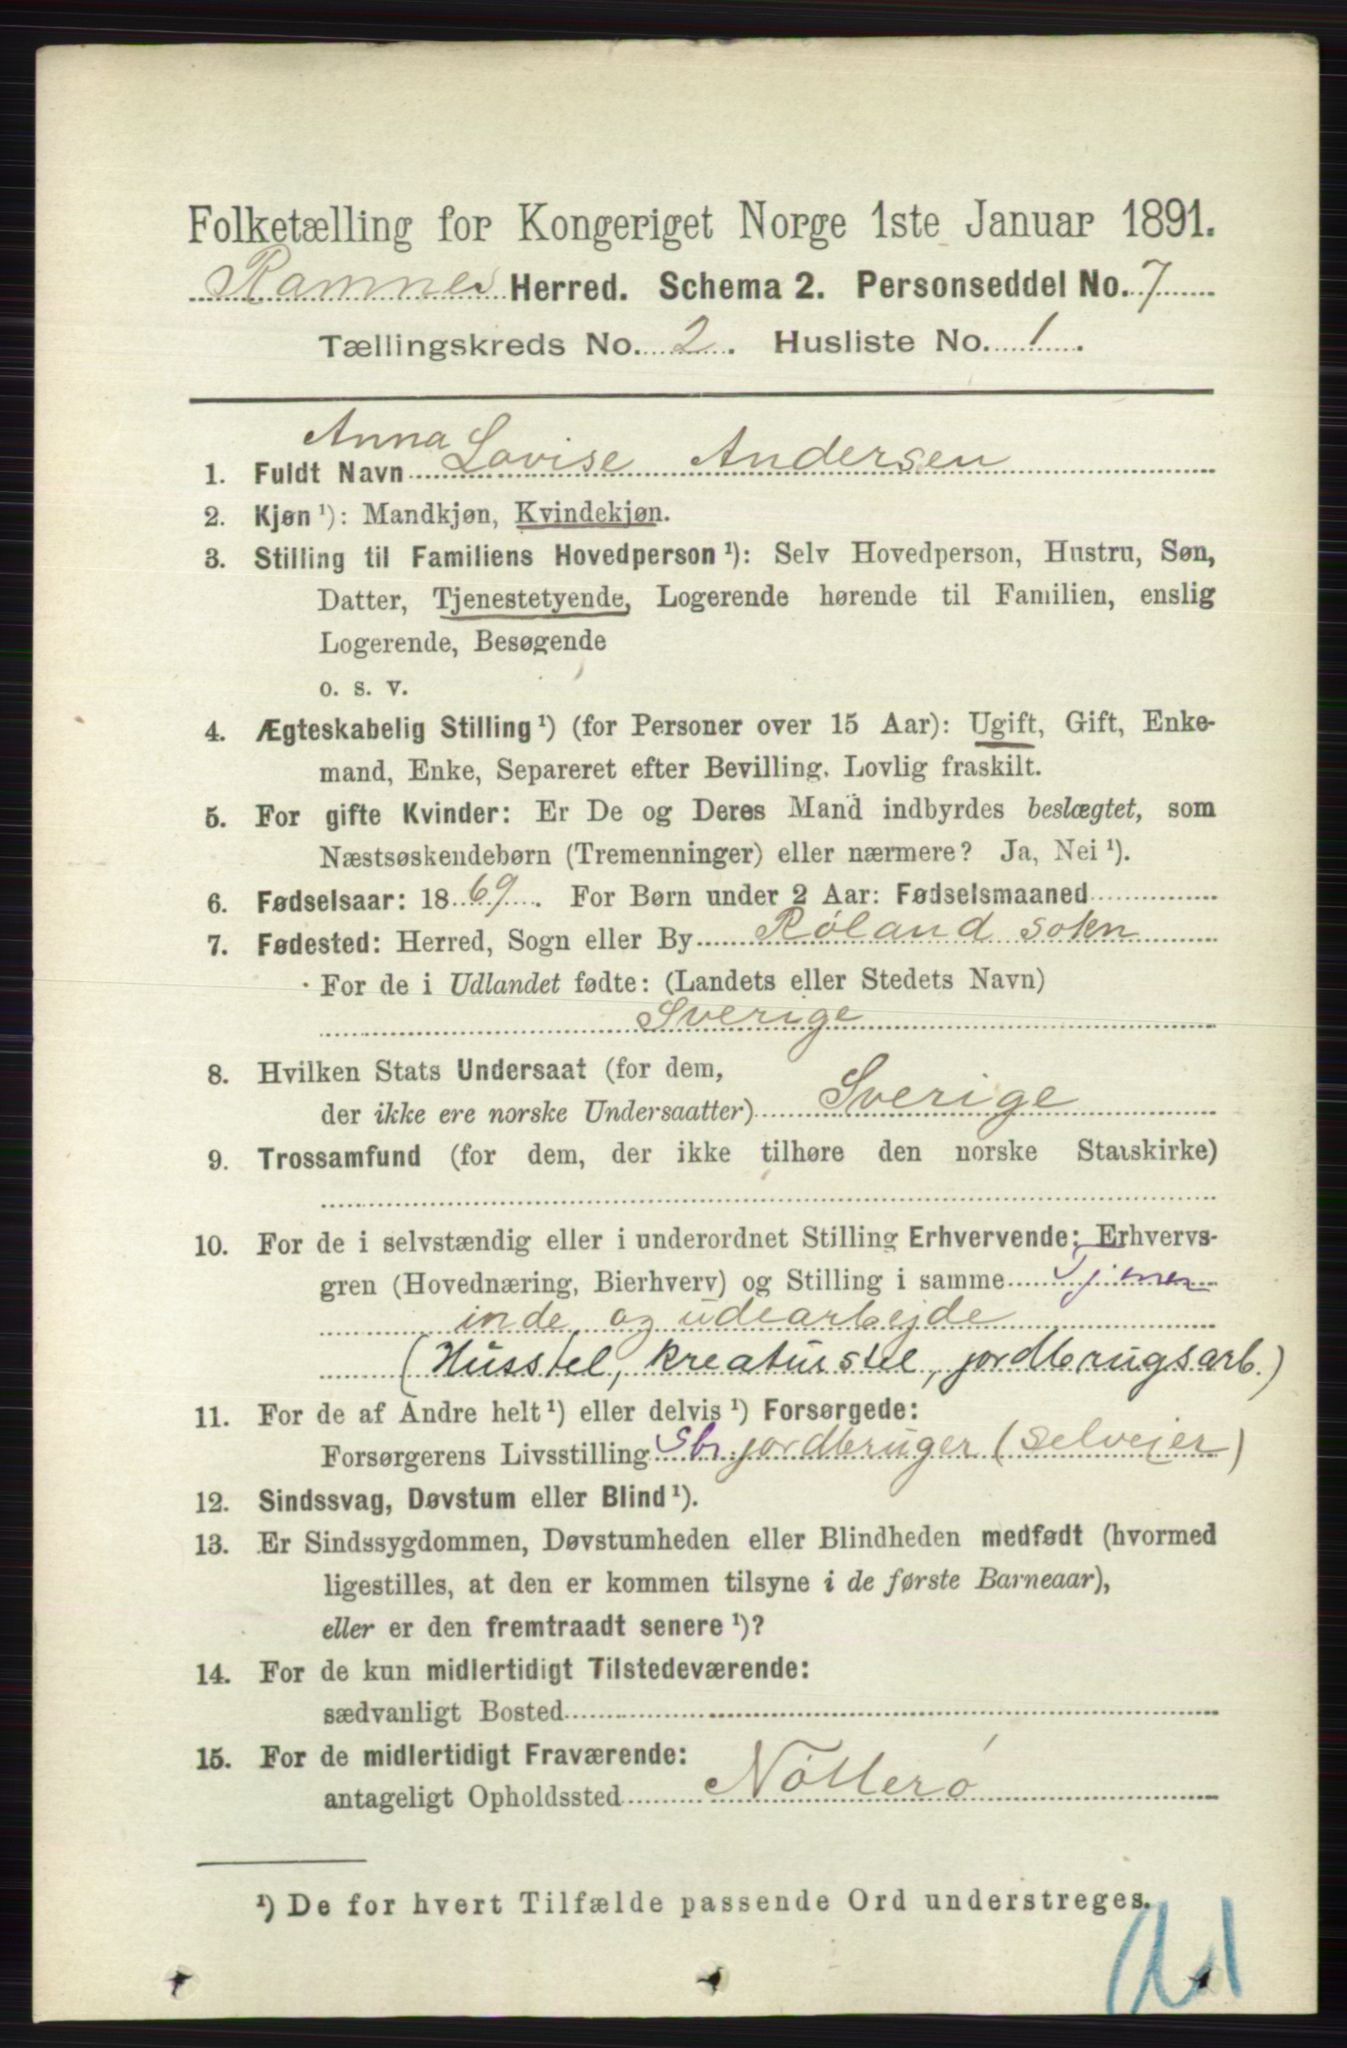 Folketælling for Kongeriget Norge 1ste Januar 1891.
Ramnes Herred. Schema 2. Personseddel No. 7
Tællingskreds No. 2. Husliste No. 1.
Anna
1. Fuldt Navn Lovise Andersen
2. Kjøn ¹): Mandkjøn, Kvindekjøn.
3. Stilling til Familiens Hovedperson ¹): Selv Hovedperson, Hustru, Søn,
Datter, Tjenestetyende, Logerende hørende til Familien, enslig
Logerende, Besøgende
o. s. v.
4. Ægteskabelig Stilling ¹) (for Personer over 15 Aar): Ugift, Gift, Enke-
mand, Enke, Separeret efter Bevilling. Lovlig fraskilt.
5. For gifte Kvinder: Er De og Deres Mand indbyrdes beslægtet, som
Næstsøskendebørn (Tremenninger) eller nærmere? Ja, Nei ¹).
6. Fødselsaar: 1869. For Børn under 2 Aar: Fødselsmaaned
7. Fødested: Herred, Sogn eller By Røland soken
For de i Udlandet fødte: (Landets eller Stedets Navn)
Sverige
8. Hvilken Stats Undersaat (for dem,
der ikke ere norske Undersaatter) Sverige
9. Trossamfund (for dem, der ikke tilhøre den norske Statskirke)
10. For de i selvstændig eller i underordnet Stilling Erhvervende: Erhvervs-
gren (Hovednæring, Bierhverv) og Stilling i samme
inde og udearbejde
(Husstel, kreaturstel, jordbrugsarb.)
11. For de af Andre helt ¹) eller delvis ¹) Forsørgede:
Forsørgerens Livsstilling Gbr. jordbruger (selveier)
12. Sindssvag, Døvstum eller Blind ¹).
13. Er Sindssygdommen, Døvstumheden eller Blindheden medfødt (hvormed
ligestilles, at den er kommen tilsyne i de første Barneaar),
eller er den fremtraadt senere ¹)?
14. For de kun midlertidigt Tilstedeværende:
sædvanligt Bosted
15. For de midlertidigt Fraværende:
antageligt Opholdssted Nøtterø
¹) De for hvert Tilfælde passende Ord understreges.